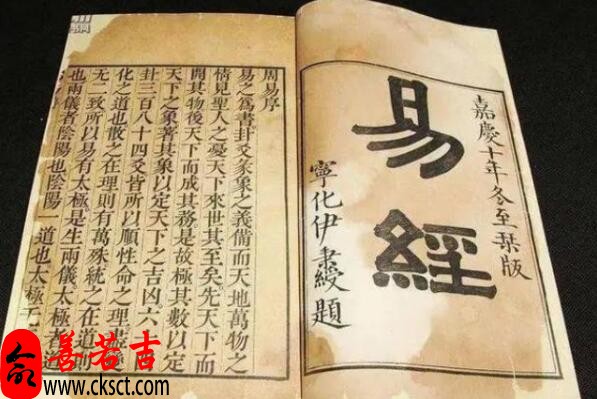 嘉慶十年冬至栞版
易經
寧化伊秉綬題
周易序
易之為書卦爻彖象之義備而天地萬物之
情見聖人之憂天下來世其至矣先天下而
開其物後天下而成其務是故極其數以定
天下之象著其象以定天下之吉凶六
卦三百八十四爻皆所以順性命之理
化之道也散之在理則有萬殊統之在道則
无二致所以易有太極是生兩儀太極者道
也兩儀者陰陽也陰陽一道也太極
善若吉
www.cksct.com